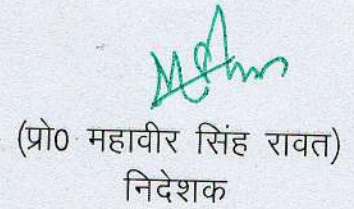 (प्रो0 महावीर सिंह रावत)
निदेशक